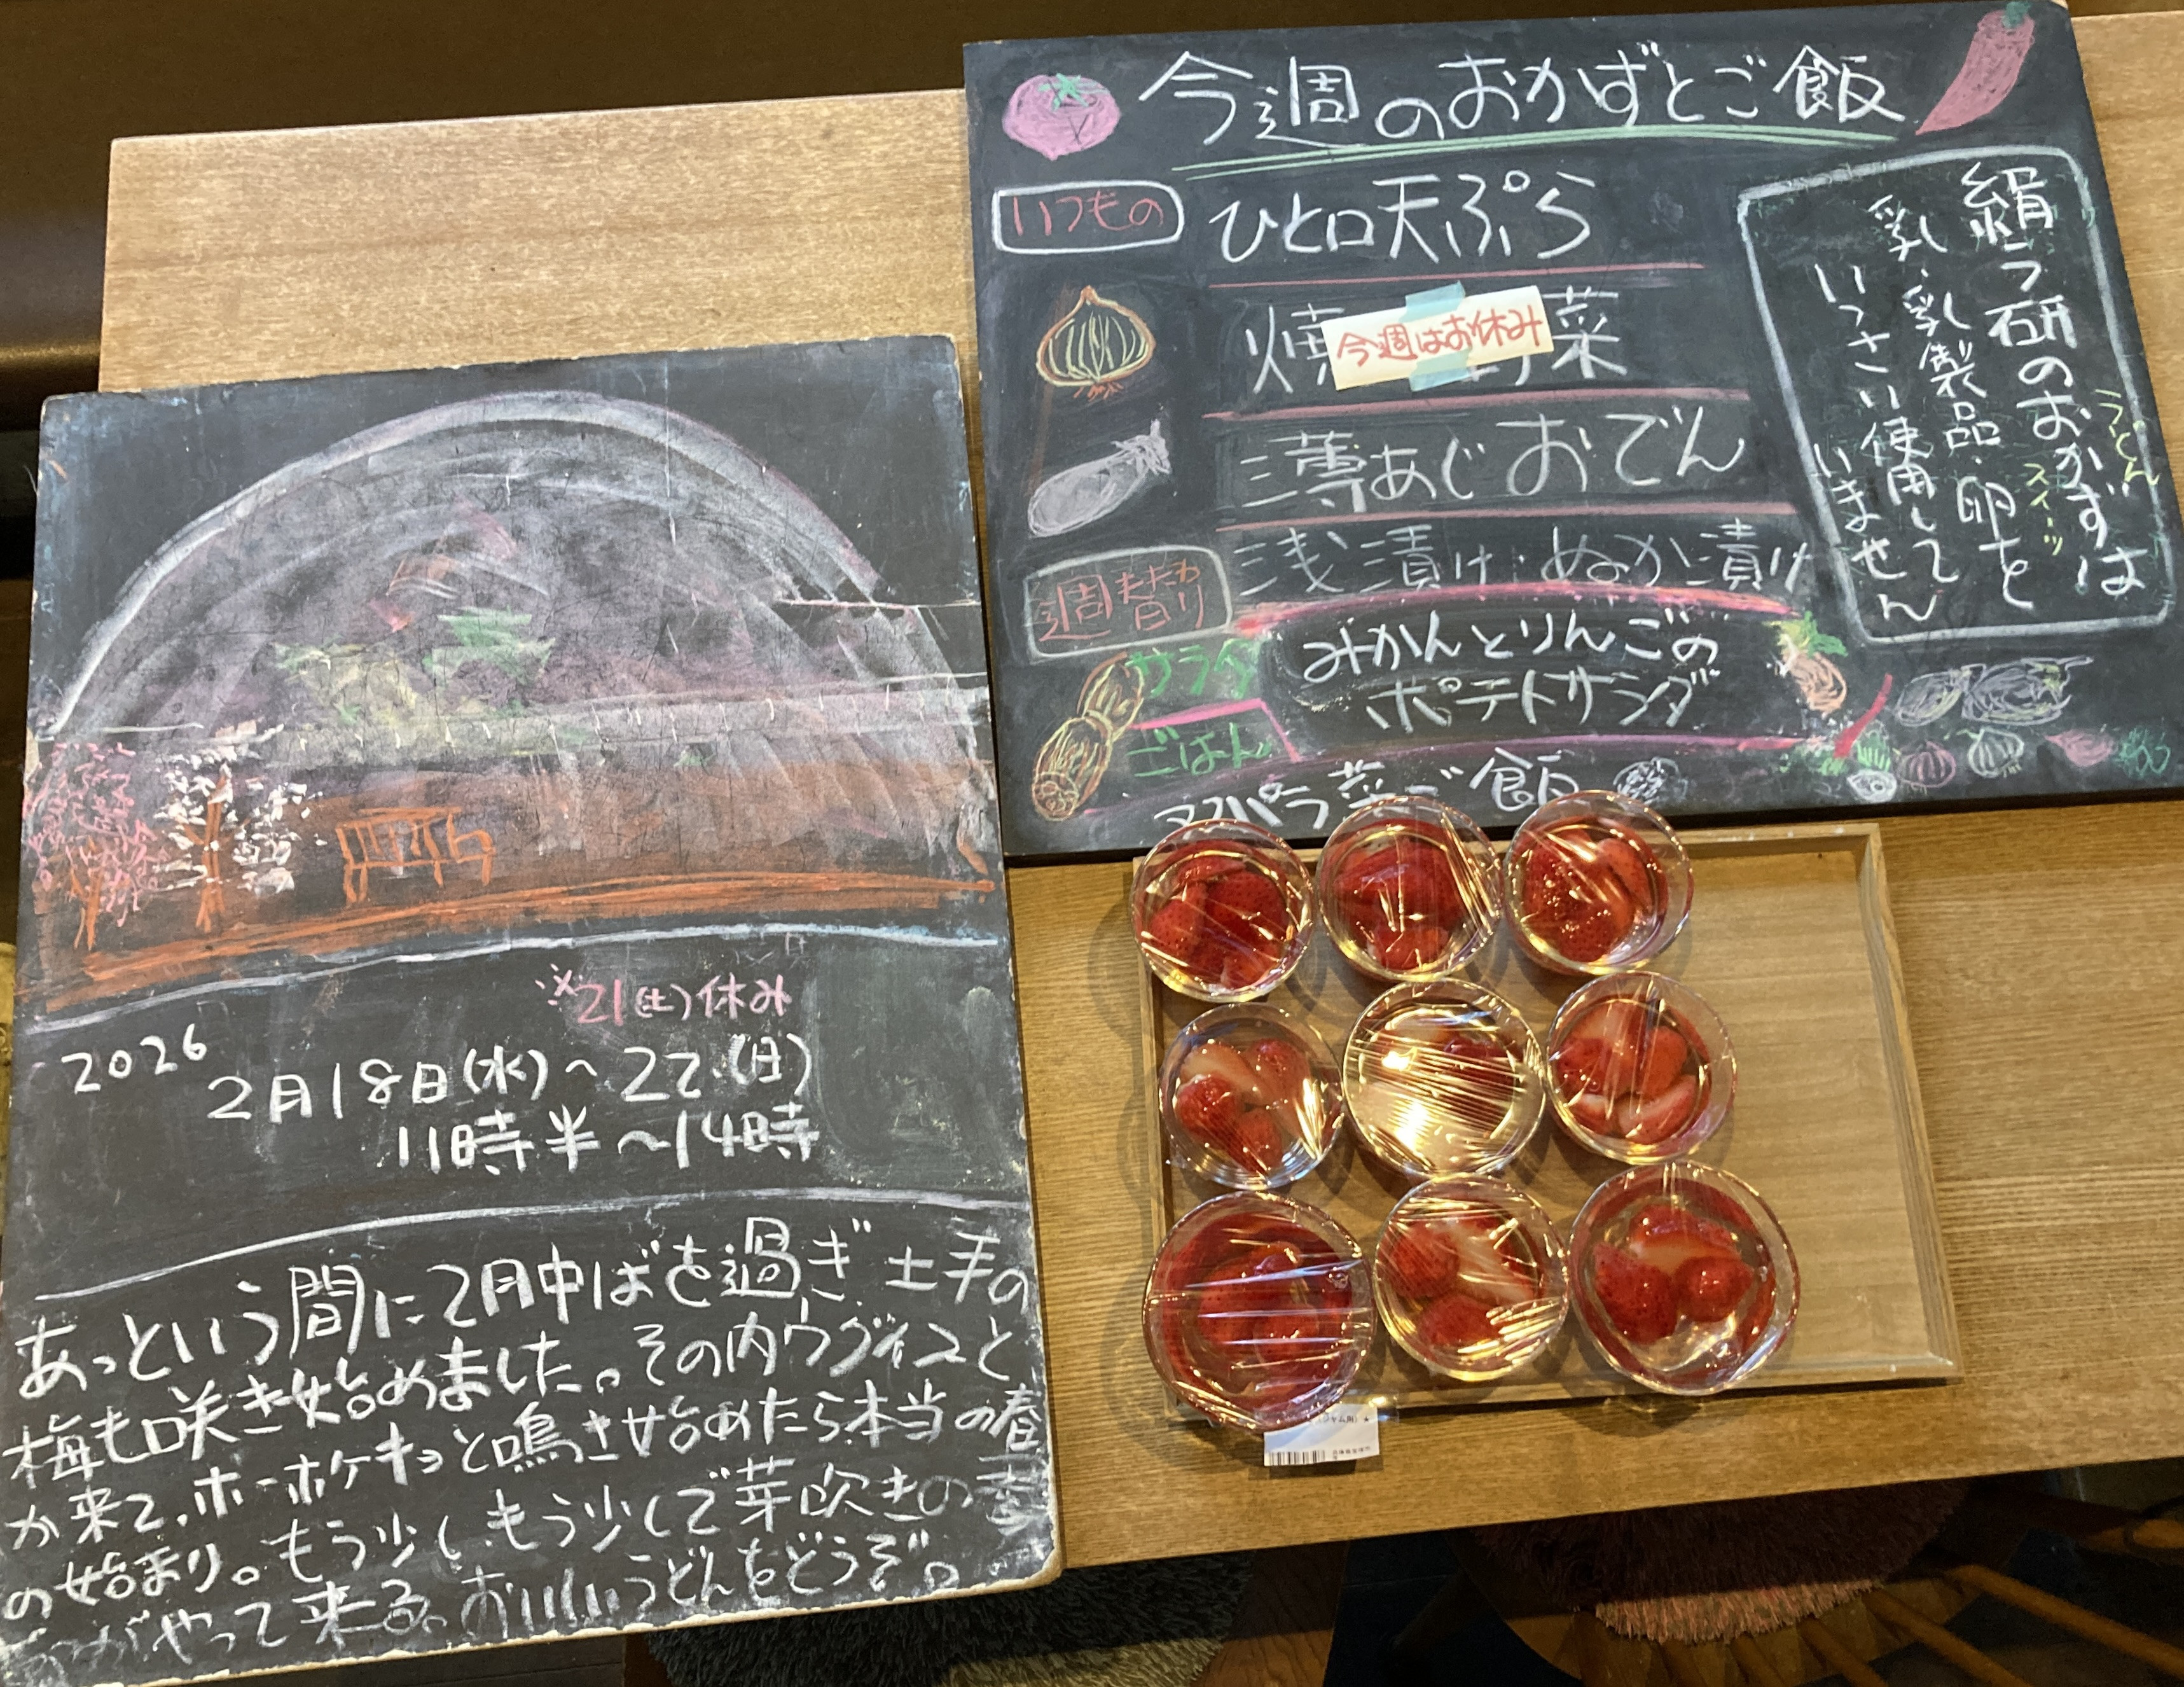 今週のおかずとご飯
いつもの
ひと口天ぷら
焼 菜
今週はお休み
薄あじおでん
浅漬け・ぬか漬け
週替わり
サラダ
みかんとりんごの
ポテトサラダ
ごはん
アスパラ菜ご飯
絹うの研おかずは
うどん
スイーツ
乳・乳製品・卵を
いっさい使用して
いません
※21(土)休み
2026
2月18日(水)~22(日)
11時半~14時
あっという間に2月中ばを過ぎ土手の
梅も咲き始めました。その内ウグイスと
か来て、ホーホケキョと鳴き始めたら本当の春
の始まり。もう少し、もう少しで芽吹きの季
がやって来る。おいしいうどんをどうぞ。